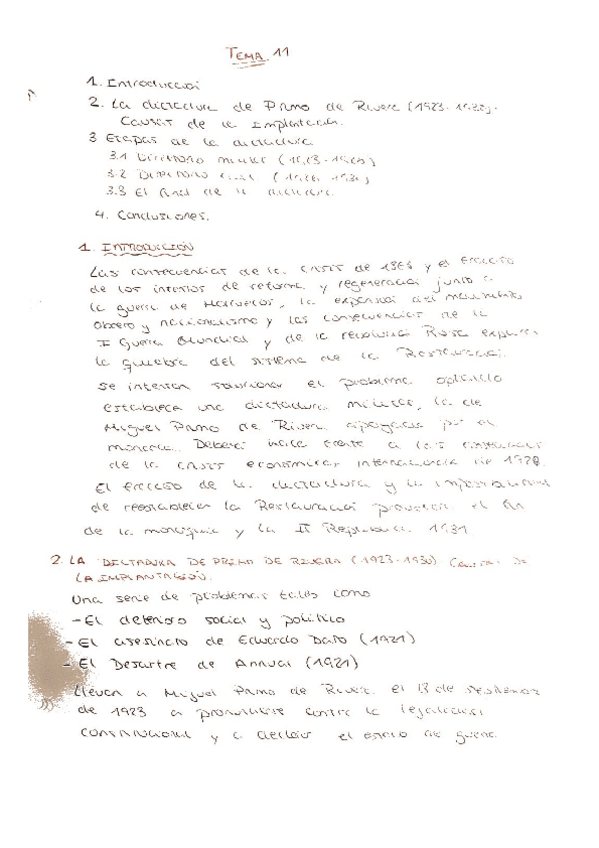 TEMA 11
1. Introducción
2. La dictadura de Primo de Rivera (1923-1930).
Causas de la Implantación.
3 Etapas de la dictadura
3.1 Directorio militar (1923-1925)
3.2 Directorio civil (1925-1930)
3.3 El final de la dictadura.
4. Conclusiones.
1. INTRODUCCIÓN
Las consecuencias de la crisis de y el fracaso
de los intentos de reforma y regeneración junto a
la guerra de Marruecos, la expansión del movimiento
obrero y nacionalismo y las consecuencias de la
I Guerra Mundial y de la revolución Rusa explican
la quiebra del sistema de la Restauración.
Se intentan solucionar el problema
estableca una dictadura militar, la de
Miguel Primo de Rivera, apoyada por el
monarca. Deberá hacer frente a las
de la crisis económica internacional de
El fracaso de la dictadura y la imposibilidad
de reestablecer la Restauración provocan el fin
de la monarquía y la II República. 1931
2. LA DICTADURA DE PRIMO DE RIVERA (1923-1930) Causas de
LA IMPLANTACIÓN.
Una serie de problemas tales como
- El deterioro social y político
- El asesinato de Eduardo Dato (1921)
- El Desastre de Annual (1921)
Llevan a Miguel Primo de Rivera el 13 de septiembre
de 1923 a pronunciarse contra la legalidad
constitucional y a declarar el estado de guerra.